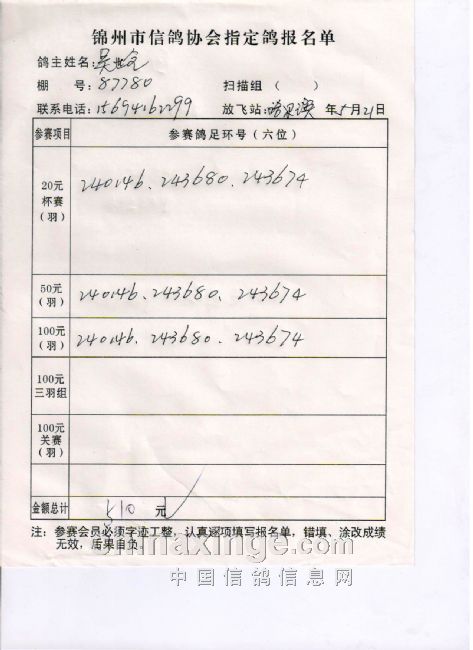 锦州市信鸽协会指定鸽报名单
鸽主姓名:吴
棚 号:87780 扫描组( )
联系电话:15694162299 放飞站: 年5月21日
参赛项目 参赛鸽足环号(六位)
20元杯赛(羽) 240146、243680、243674
50元(羽) 240146、243680、243674
100元(羽) 240146、243680、243674
100元三羽组
100元关赛(羽)
金额总计 510 元
注:参赛会员必须字迹工整,认真逐项填写报名单,错填、涂改成绩
无效,后果自负
chinaxinge.com
中国信鸽信息网